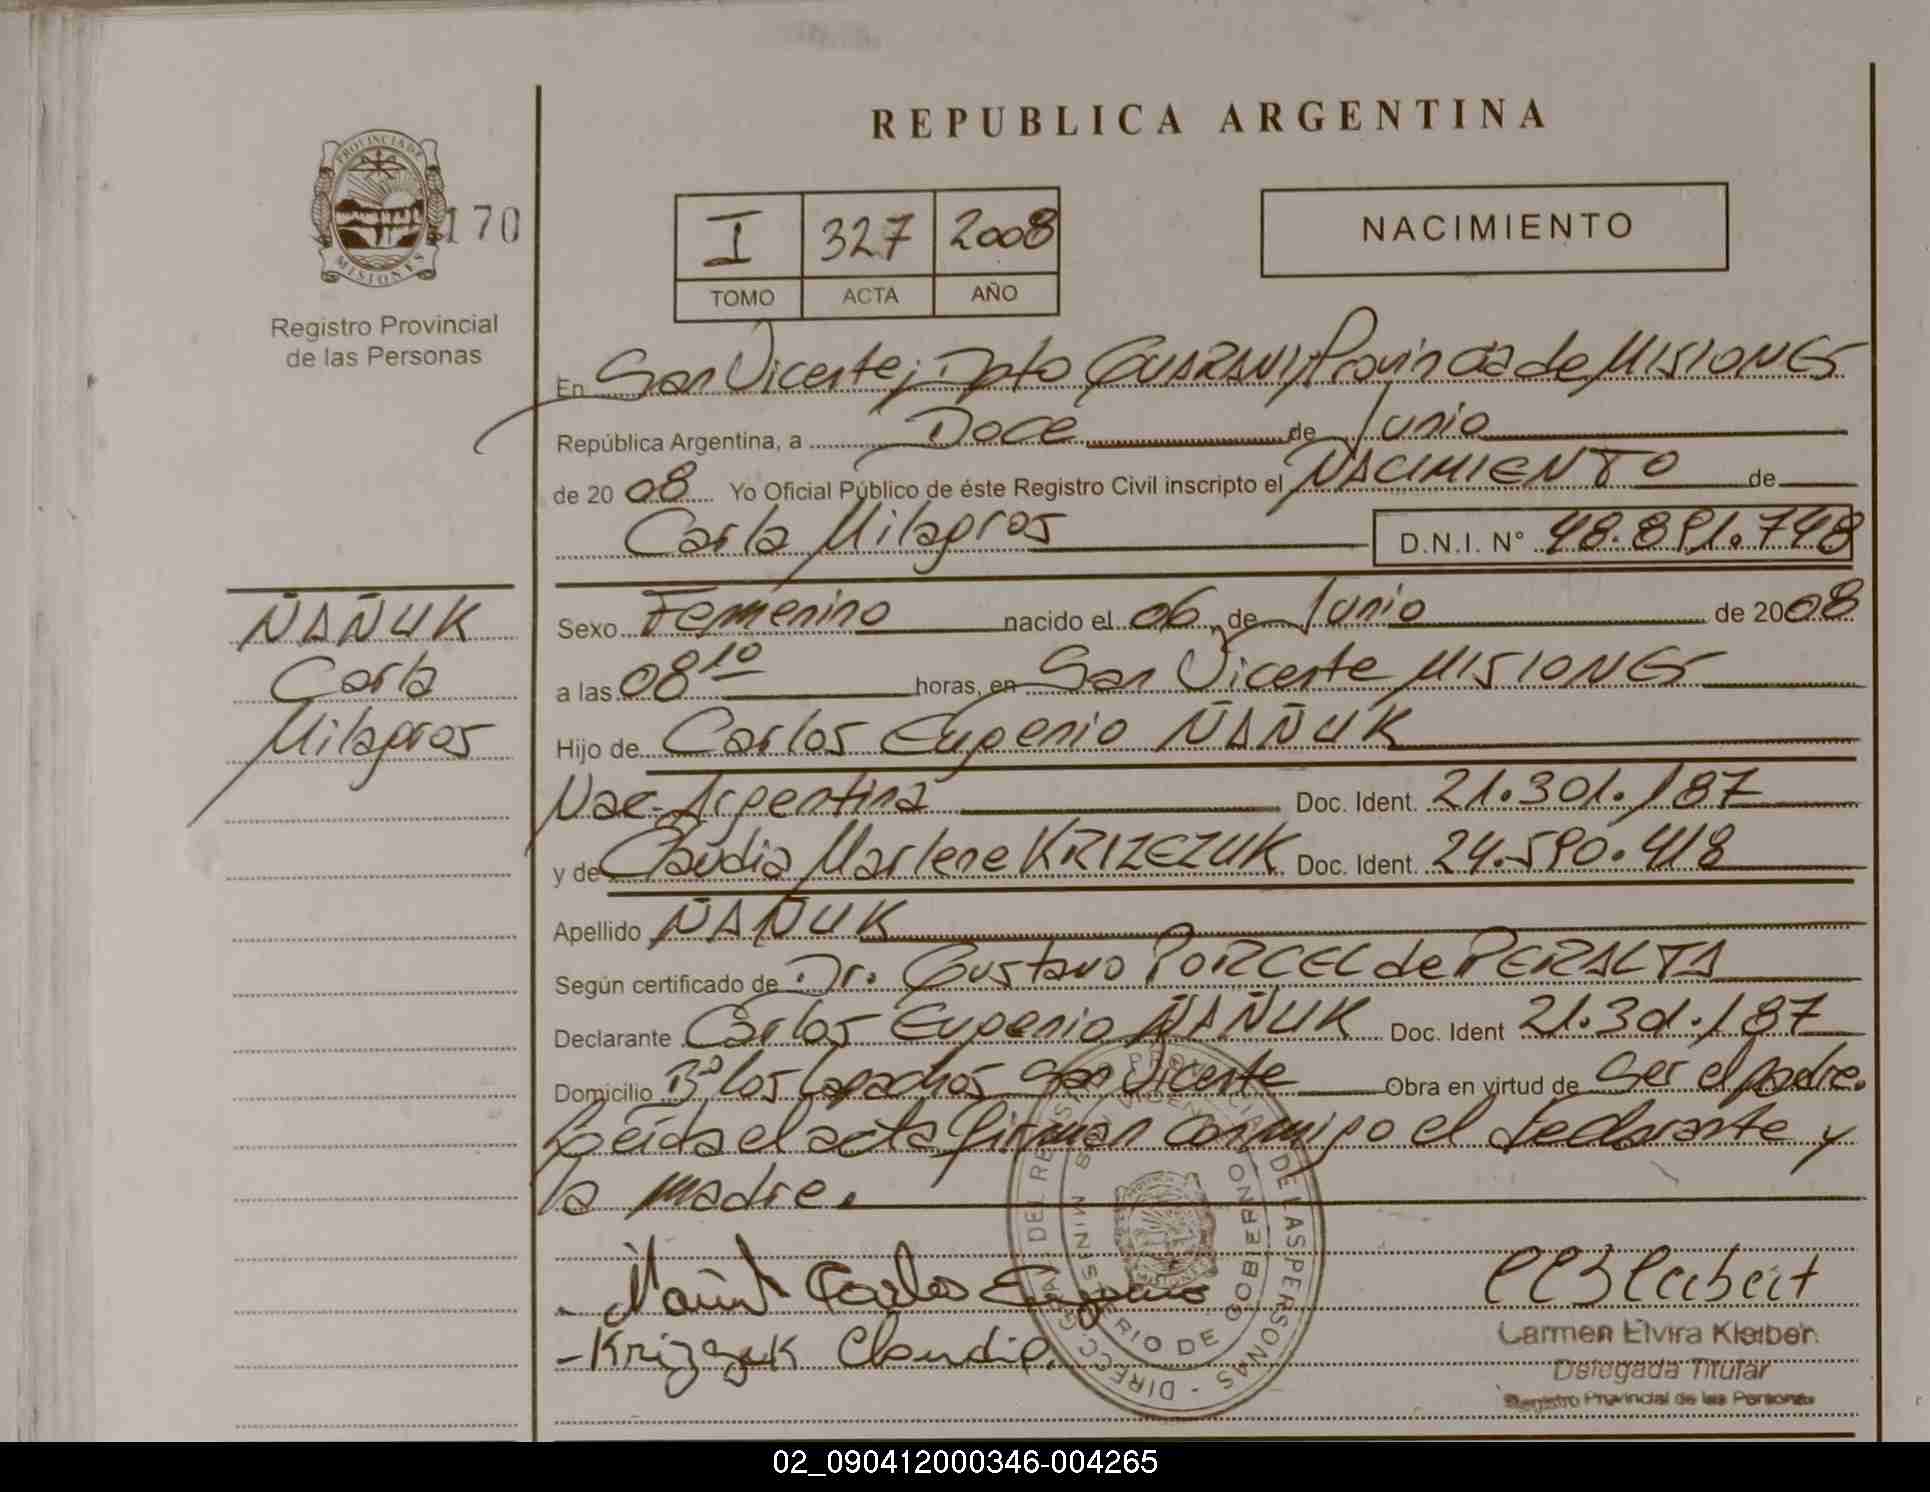 REPUBLICA ARGENTINA
PROVINCIA DE MISIONES
170
Registro Provincial
de las Personas
I 327 2008
TOMO ACTA AÑO
NACIMIENTO
En San Vicente, Dpto GUARANI, Provincia de MISIONES
República Argentina, a Doce de Junio
de 2008 Yo Oficial Público de éste Registro Civil inscripto el NACIMIENTO de
Carla Milagros D.N.I. N° 48.891.748
ÑAÑUK
Carla
Milagros
Sexo Femenino nacido el 06 de Junio de 2008
a las 08 10 horas, en San Vicente MISIONES
Hijo de Carlos Eugenio ÑAÑUK
Nac. Argentina Doc. Ident. 21.301.187
y de Claudia Marlene KRIZEZUK Doc. Ident. 24.590.418
Apellido ÑAÑUK
Según certificado de Dr. Gustavo PORCEL de PERALTA
Declarante Carlos Eugenio ÑAÑUK Doc. Ident 21.301.187
Domicilio B° Los Lapachos San Vicente Obra en virtud de Ser el padre.
Leída el acta firman conmigo el declarante y
la madre.
Carlos Eugenio
Claudia
Carmen Elvira Kleiber
Delegada Titular
Registro Provincial de las Personas
DE LAS PERSONAS - DIRECC. GRAL. DEL
MINISTERIO DE GOBIERNO
MISIONES
02_090412000346-004265